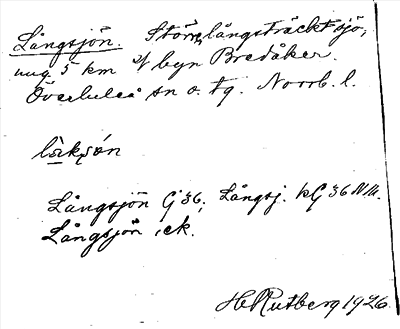 Långsjön. Större, långsträckt sjö,
ung. 5 km v byn Bredåker.
Överluleå sn o. tg. Norrb. l.
Långsjön G 36; Långsj. kG 36 NM.
Långsjön, ek.
H Rutberg 1926.